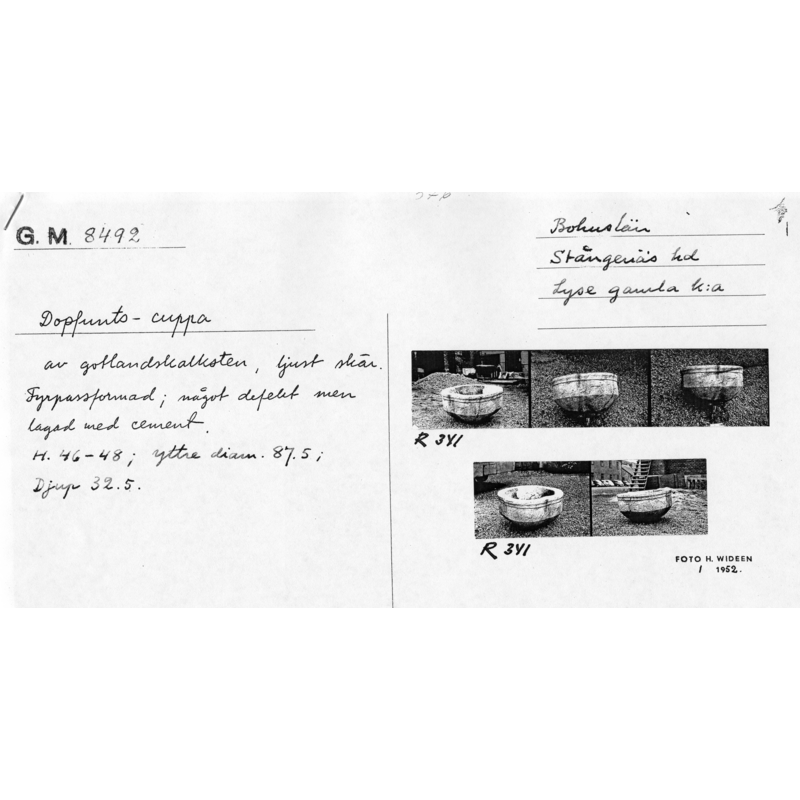 G. M. 8492
Bohuslän
Stångenäs hd
Lyse gamla k:a
Dopfunts-cuppa
av gotlandskalksten, ljust skär.
Fyrpassformad; något defekt men
lagad med cement.
H. 46-48; yttre diam. 87.5;
Djup 32.5.
R 341
R 341
FOTO H. WIDEEN
1 1952.